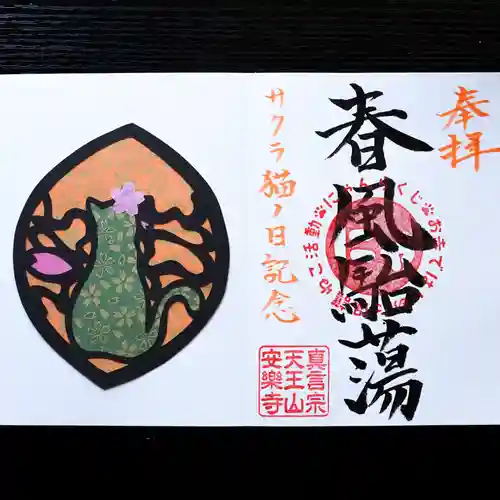 奉拝
春風駘蕩
サクラ猫ノ日記念
真言宗
天王山
安樂寺